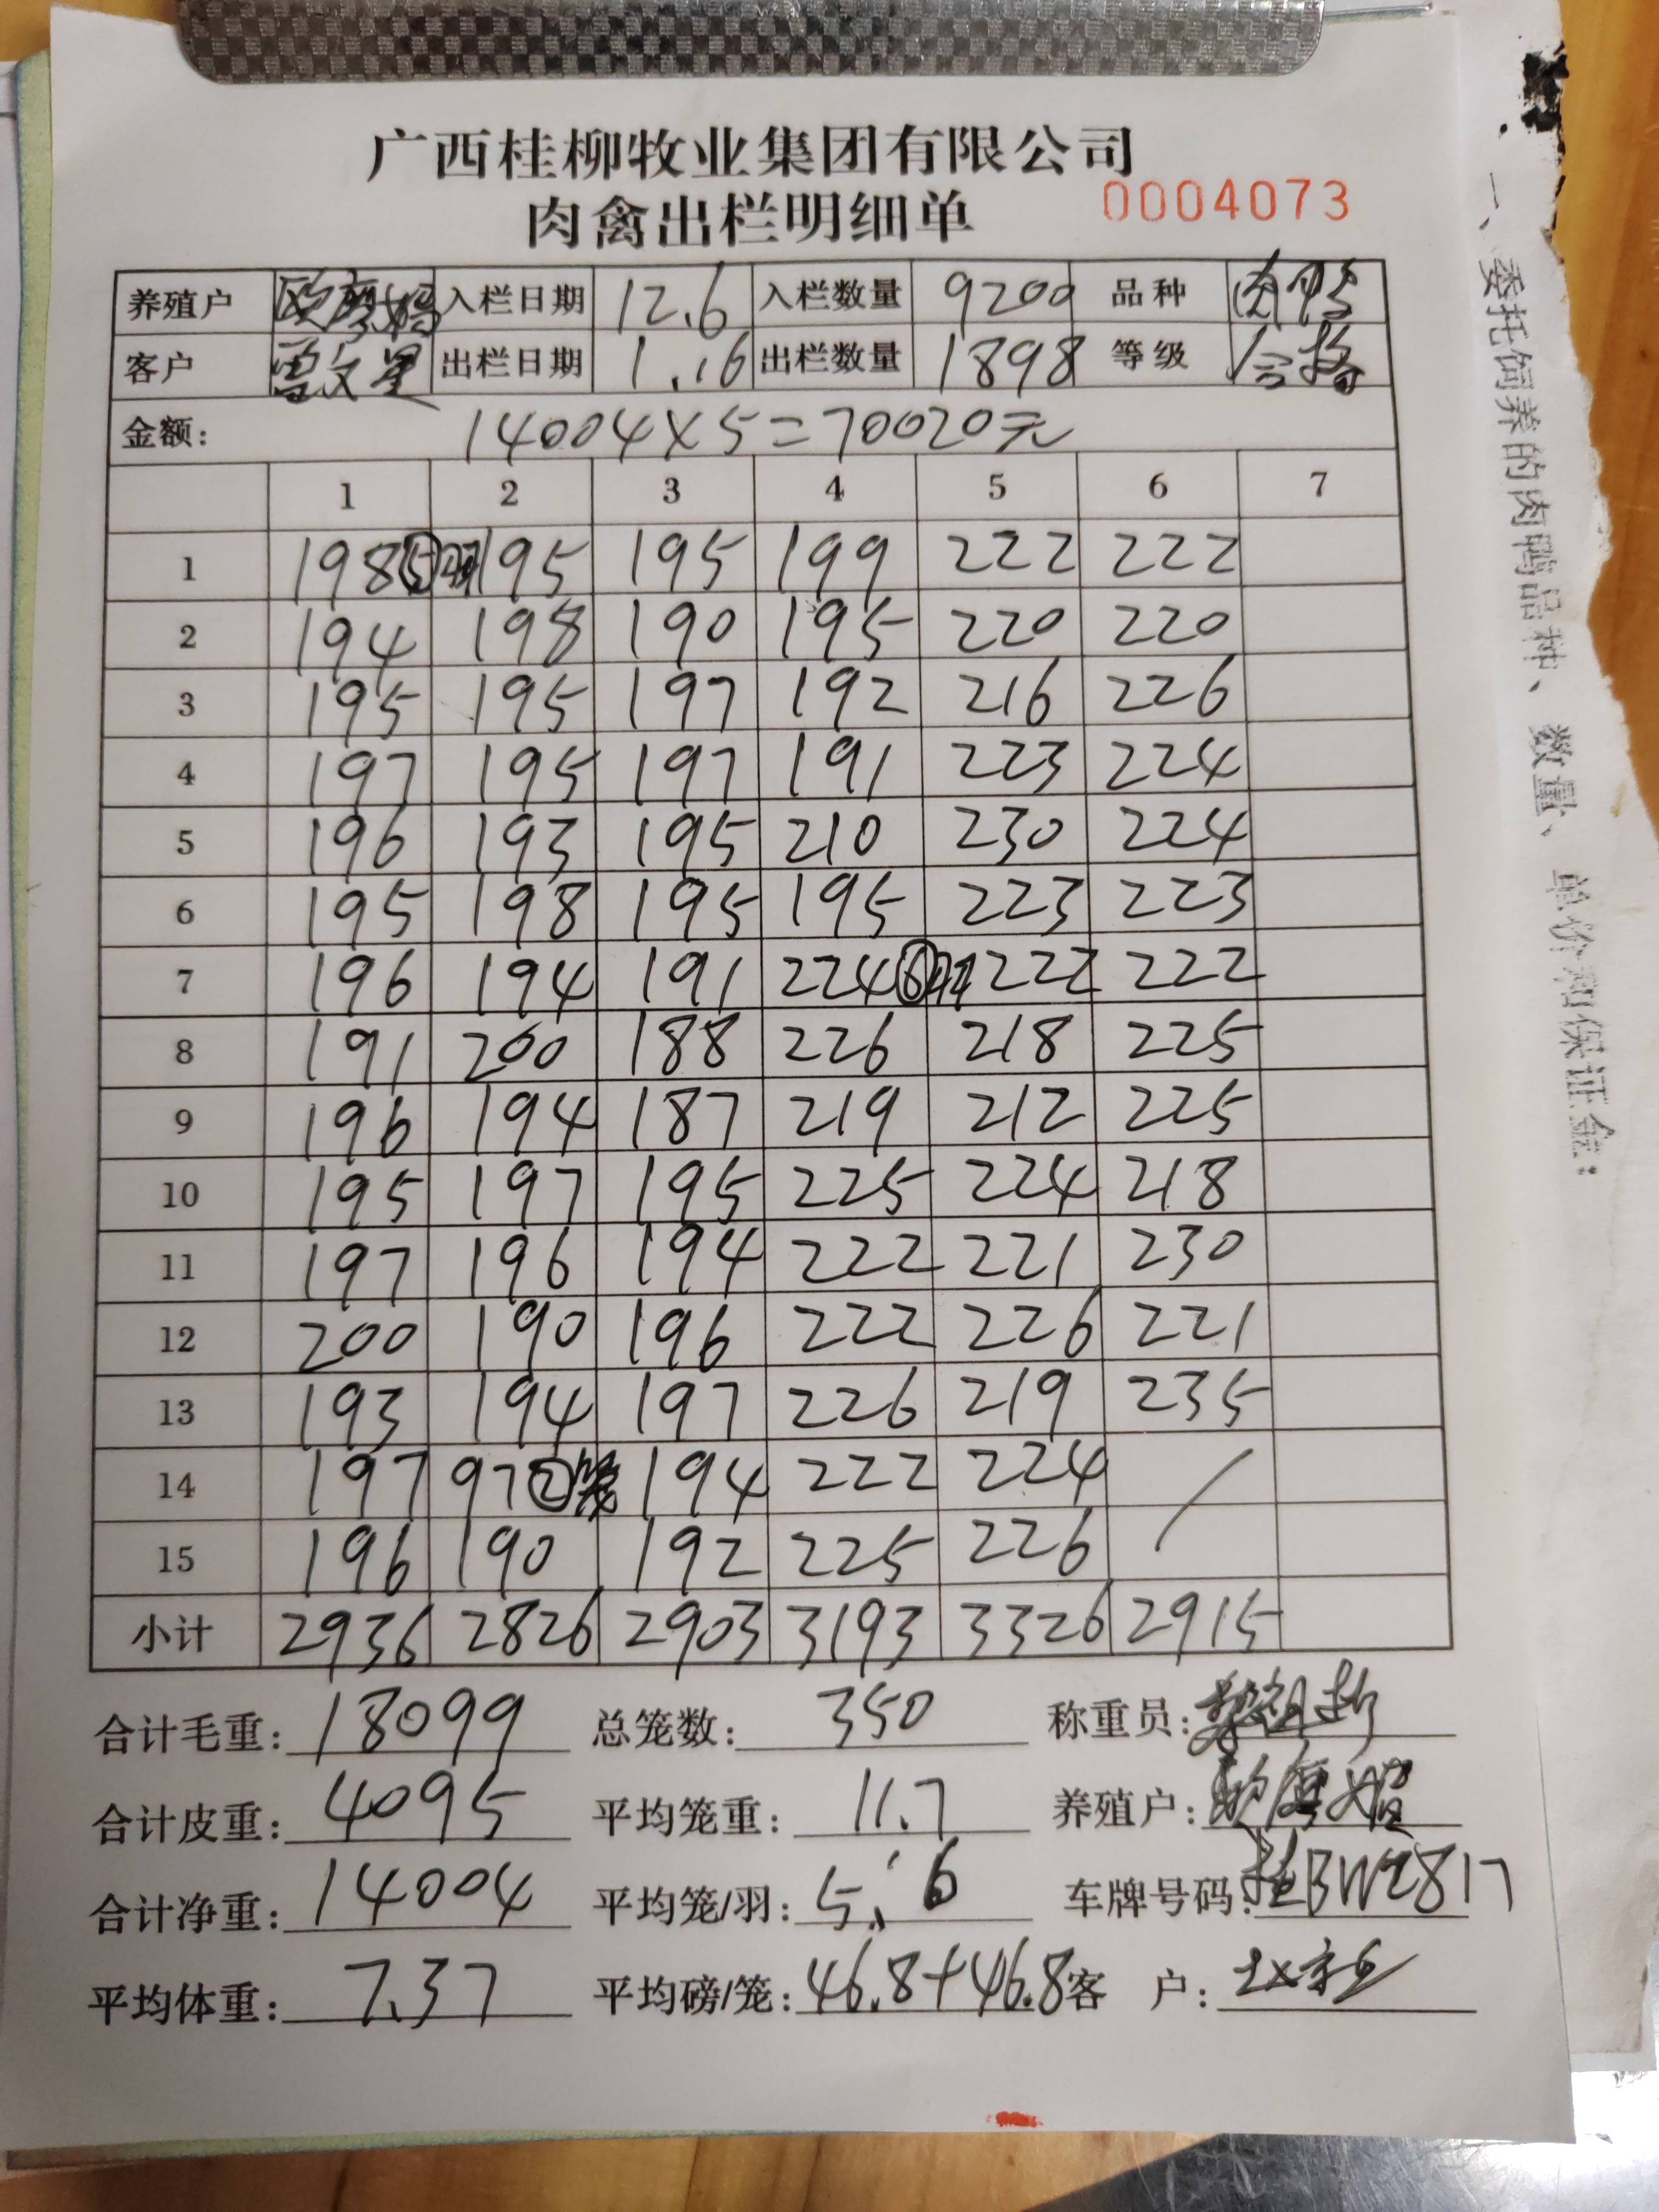 广西桂柳牧业集团有限公司
肉禽出栏明细单 0004073
养殖户 入栏日期 12.6 入栏数量 9200 品种 肉鸭
客户 曹文星 出栏日期 1.16 出栏数量 1898 等级 合格
金额: 14004×5=70020元
1 2 3 4 5 6 7
1 198⑤羽 195 195 199 222 222
2 194 198 190 195 220 220
3 195 195 197 192 216 226
4 197 195 197 191 223 224
5 196 193 195 210 230 224
6 195 198 195 195 223 223
7 196 194 191 224⑥羽 222 222
8 191 200 188 226 218 225
9 196 194 187 219 212 225
10 195 197 195 225 224 218
11 197 196 194 222 221 230
12 200 190 196 222 226 221
13 193 194 197 226 219 235
14 197 97②笼 194 222 224 /
15 196 190 192 225 226
小计 2936 2826 2903 3193 3326 2915
合计毛重: 18099 总笼数: 350 称重员:
合计皮重: 4095 平均笼重: 11.7 养殖户:
合计净重: 14004 平均笼/羽: 5.6 车牌号码: 桂BW2817
平均体重: 7.37 平均磅/笼: 46.8+46.8 客 户:
一、委托饲养的肉鸭品种、数量、单价和保证金: